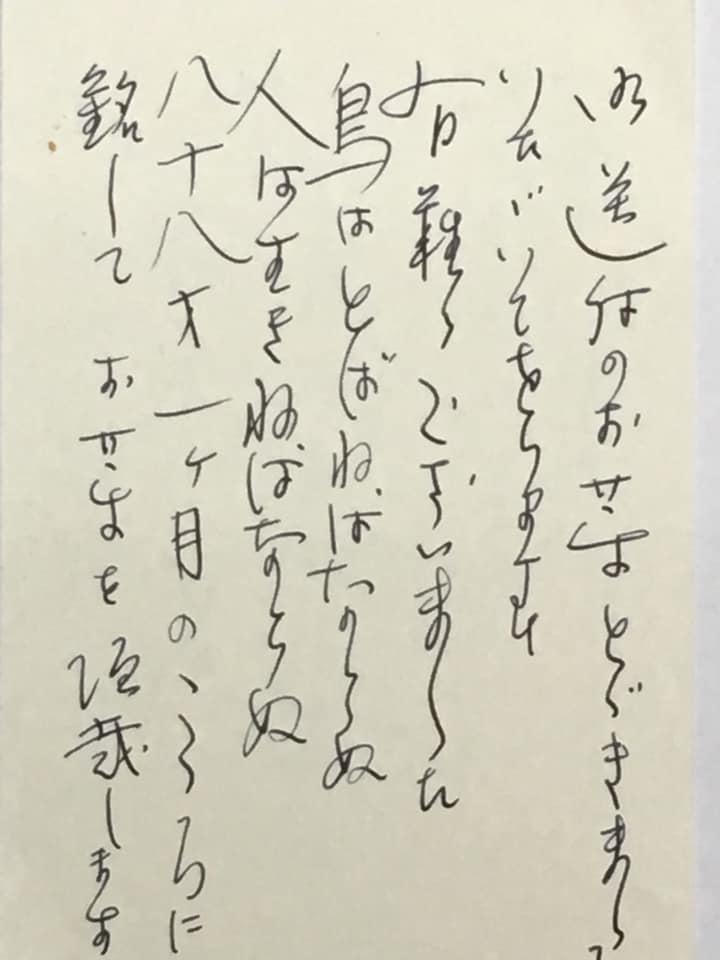 御送付のお とどきまして
いたゞいてをります
有難うございました
鳥はとばねばならぬ
人は生きねばならぬ
八十八才一ヶ月のこころに
銘して お を頂戴します